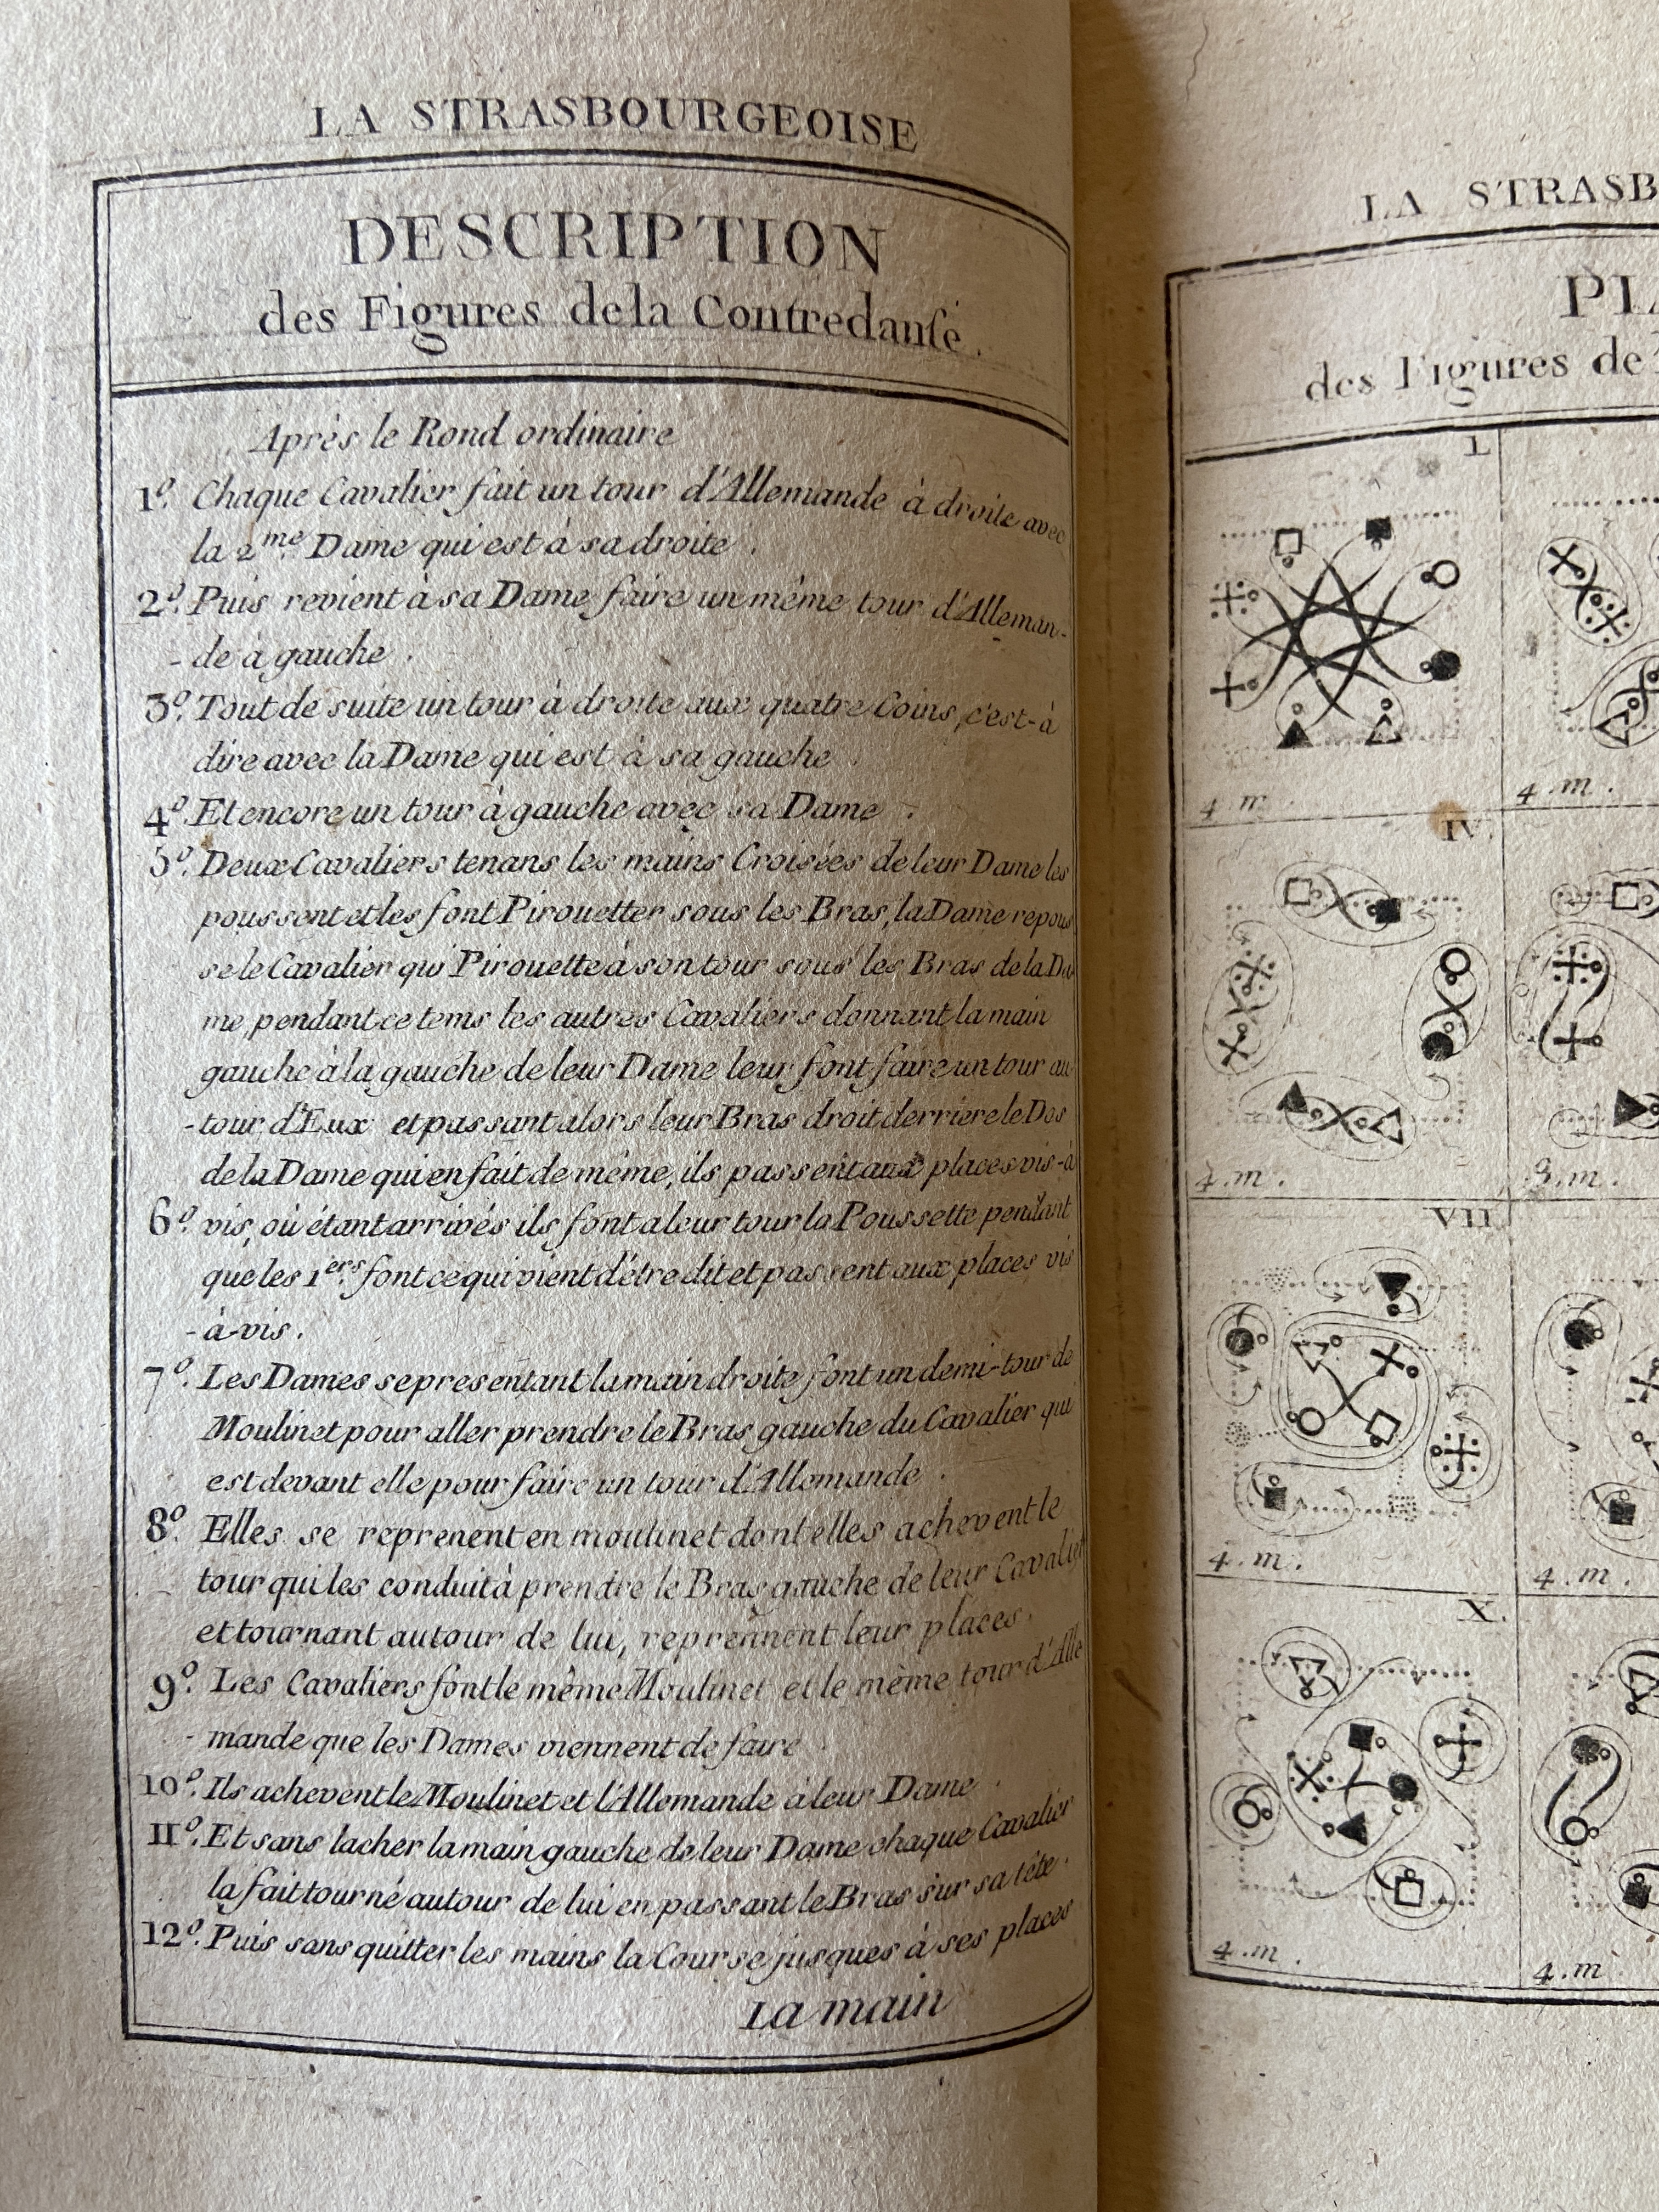 LA STRASBOURGEOISE
DESCRIPTION
des Figures de la Contredanſe.
Après le Rond ordinaire
1º. Chaque Cavalier fait un tour d'Allemande à droite avec
la 2me. Dame qui est à sa droite.
2º. Puis revient à sa Dame faire un même tour d'Alleman-
-de à gauche.
3º. Tout de suite un tour à droite aux quatre Coins, c'est-à
dire avec la Dame qui est à sa gauche
4º. Et encore un tour à gauche avec sa Dame.
5º. Deux Cavaliers tenans les mains Croisées de leur Dame les
poussent et les font Pirouetter sous les Bras, la Dame repous
se le Cavalier qui Pirouette à son tour sous les Bras de la Da
me pendant ce tems les autres Cavaliers donnant la main
gauche à la gauche de leur Dame leur font faire un tour au
-tour d'Eux et passant alors leur Bras droit derriere le Dos
de la Dame qui en fait de même, ils passent aux places vis-à
6º. vis, où étant arrivés ils font a leur tour la Poussette pendant
que les 1ers. font ce qui vient d'étre dit et passent aux places vis
-à-vis.
7º. Les Dames se presentant la main droite font un demi-tour de
Moulinet pour aller prendre le Bras gauche du Cavalier qui
est devant elle pour faire un tour d'Allemande.
8º. Elles se reprenent en moulinet dont elles achevent le
tour qui les conduit à prendre le Bras gauche de leur Cavalier
et tournant autour de lui, reprennent leur places.
9º. Les Cavaliers font le même Moulinet et le même tour d'Alle
-mande que les Dames viennent de faire
10º. Ils achevent le Moulinet et l'Allemande à leur Dame.
11º. Et sans lacher la main gauche de leur Dame chaque Cavalier
la fait tourné autour de lui en passant le Bras sur sa tête.
12º. Puis sans quitter les mains la Course jusques à ses places
La main
LA STRASB
PLA
des Figures de
I.
4.m.
4.m.
IV.
4.m.
3.m.
VII.
4.m.
4.m.
X.
4.m.
4.m